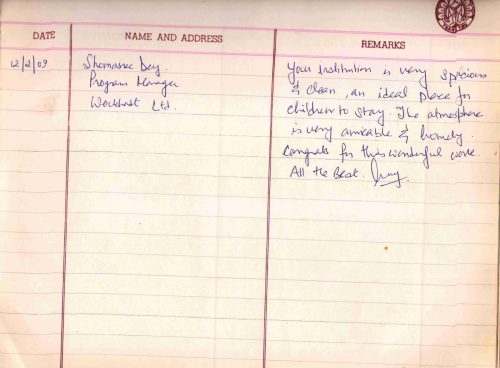 DATE NAME AND ADDRESS REMARKS
12/2/09 Shomasree Dey. Your institution is very spacious
Program Manager & clean, an ideal place for
Ltd. children to stay. The atmosphere
is very amicable & homely.
Congrats for this wonderful work.
All the Best.